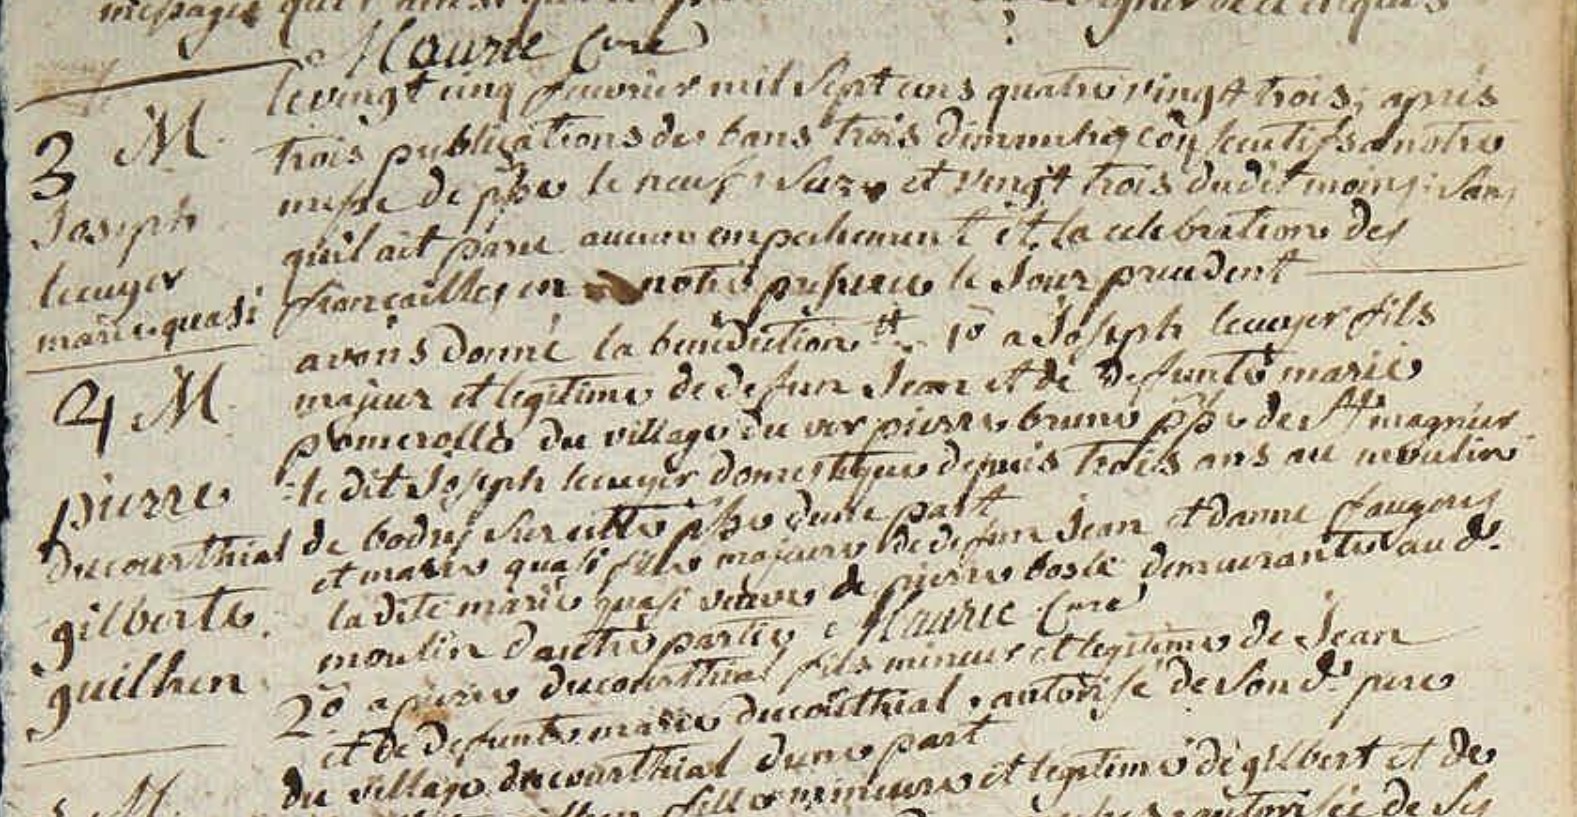 Maurie Curé
le vingt cinq fevrier mil sept cens quatre vingt trois, apres
trois publications de bans trois dimanches consecutifs a notre
messe de psse le neuf, seize et vingt trois dudit mois, sans
quil ait paru aucun empechement et la celebration des
fiancailles en notre presence le Jour precedent
avons donné la benediction 1o a Joseph lecuyer fils
majeur et legitime de defun Jean et de defunte marie
pomerolle du village du ver pierre brune ppsse de St magnier
le dit Joseph lecuyer domestique depuis trois ans au moulin
de bodes sur cette psse dune part
et marie quasi fille majeure de defun Jean et danne faugeres
la dite marie quasi veuve de pierre boste demeurante au d.
moulin dautre partie Maurie Curé
2o a pierre ducourthial fils mineur et legitime de Jean
et de defunte marie ducourthial autorisé de son d. pere
du village ducourthial dune part
fille mineure et legitime de gilbert et de
autorisée de ses
3 M
Joseph
lecuyer
marie quasi
4 M
pierre
ducourthial
gilberte
guilhen
M